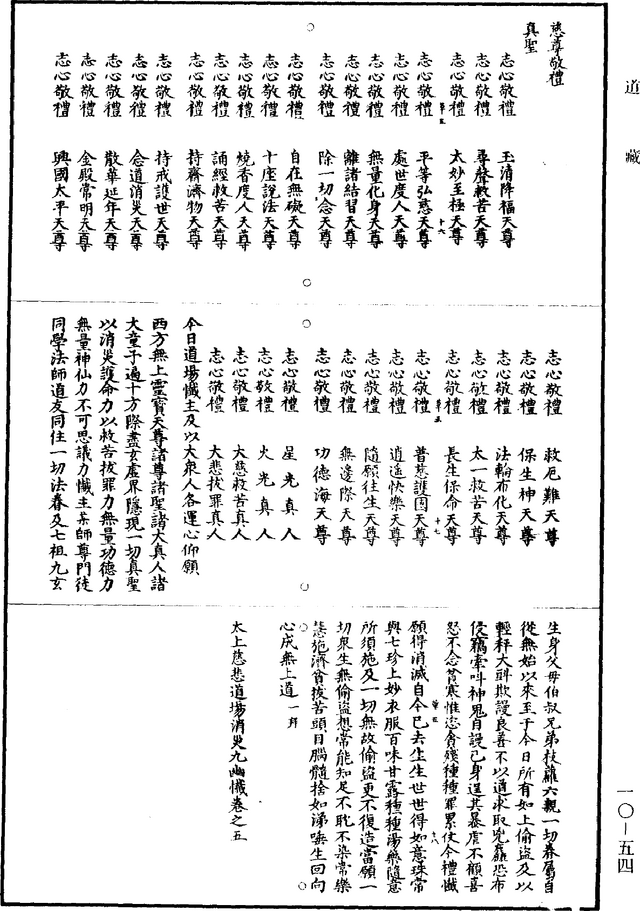 道藏
慈尊敬禮
真聖
志心敬禮 玉清降福天尊
志心敬禮 尋聲救苦天尊
志心敬禮 太妙至極天尊
志心敬禮 平等弘慈天尊
志心敬禮 處世度人天尊
志心敬禮 無量化身天尊
志心敬禮 離諸結習天尊
志心敬禮 除一切念天尊
志心敬禮 自在無礙天尊
志心敬禮 十座說法天尊
志心敬禮 燒香度人天尊
志心敬禮 誦經救苦天尊
志心敬禮 持齋濟物天尊
志心敬禮 持戒護世天尊
志心敬禮 念道消災天尊
志心敬禮 散華延年天尊
志心敬禮 金殿常明天尊
志心敬禮 興國太平天尊
志心敬禮 救厄難天尊
志心敬禮 保生神天尊
志心敬禮 法輪布化天尊
志心敬禮 太一救苦天尊
志心敬禮 長生保命天尊
志心敬禮 普慈護國天尊
志心敬禮 逍遙快樂天尊
志心敬禮 隨願往生天尊
志心敬禮 無邊際天尊
志心敬禮 功德海天尊
志心敬禮 星光真人
志心敬禮 火光真人
志心敬禮 大慈救苦真人
志心敬禮 大悲拔罪真人
今日道場懺主及以大衆人各運心仰願
西方無上靈寶天尊諸尊諸聖諸大真人諸
大童子遍十方際盡玄虛界隱現一切真聖
以消災護命力以救苦拔罪力無量功德力
無量神仙力不可思議力懺主某師尊門徒
同學法師道友同住一切法眷及七祖九玄
生身父母伯叔兄弟枝羅六親一切眷屬自
從無始以來至于今日所有如上偷盜及以
輕秤大㪷欺謾良善不以道求取兇麤恐布
侵竊牽叫神鬼自設己身逞其暴虐不顧喜
怒不念貧寒惟恣貪殘種種罪累使今禮懺
願得消滅自今已去生生世世得如意珠常
興七珍上妙衣服百味甘露種種湯藥隨意
所須施及一切無故偷盜更不復造當願一
切衆生無偷盜想常能知足不耽不染常樂
慧施濟貧拔苦頭目腦髓捨如涕唾生回向
心成無上道 一拜
太上慈悲道場消災九幽懺卷之五
一〇—五四